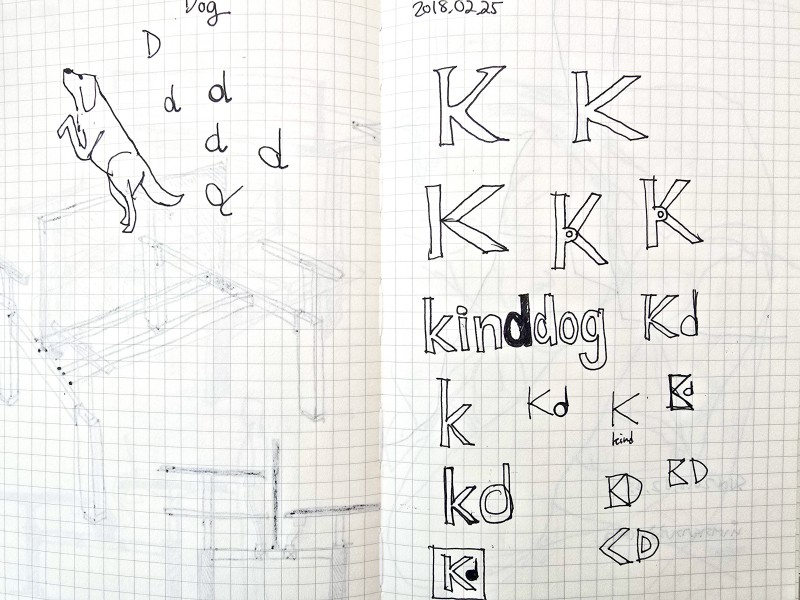 Dog
D
d d
d d
d
2018.02.25
K K
K K K
kinddog Kd
k Kd K Kd
kind
kd KD KD
KD
Kd